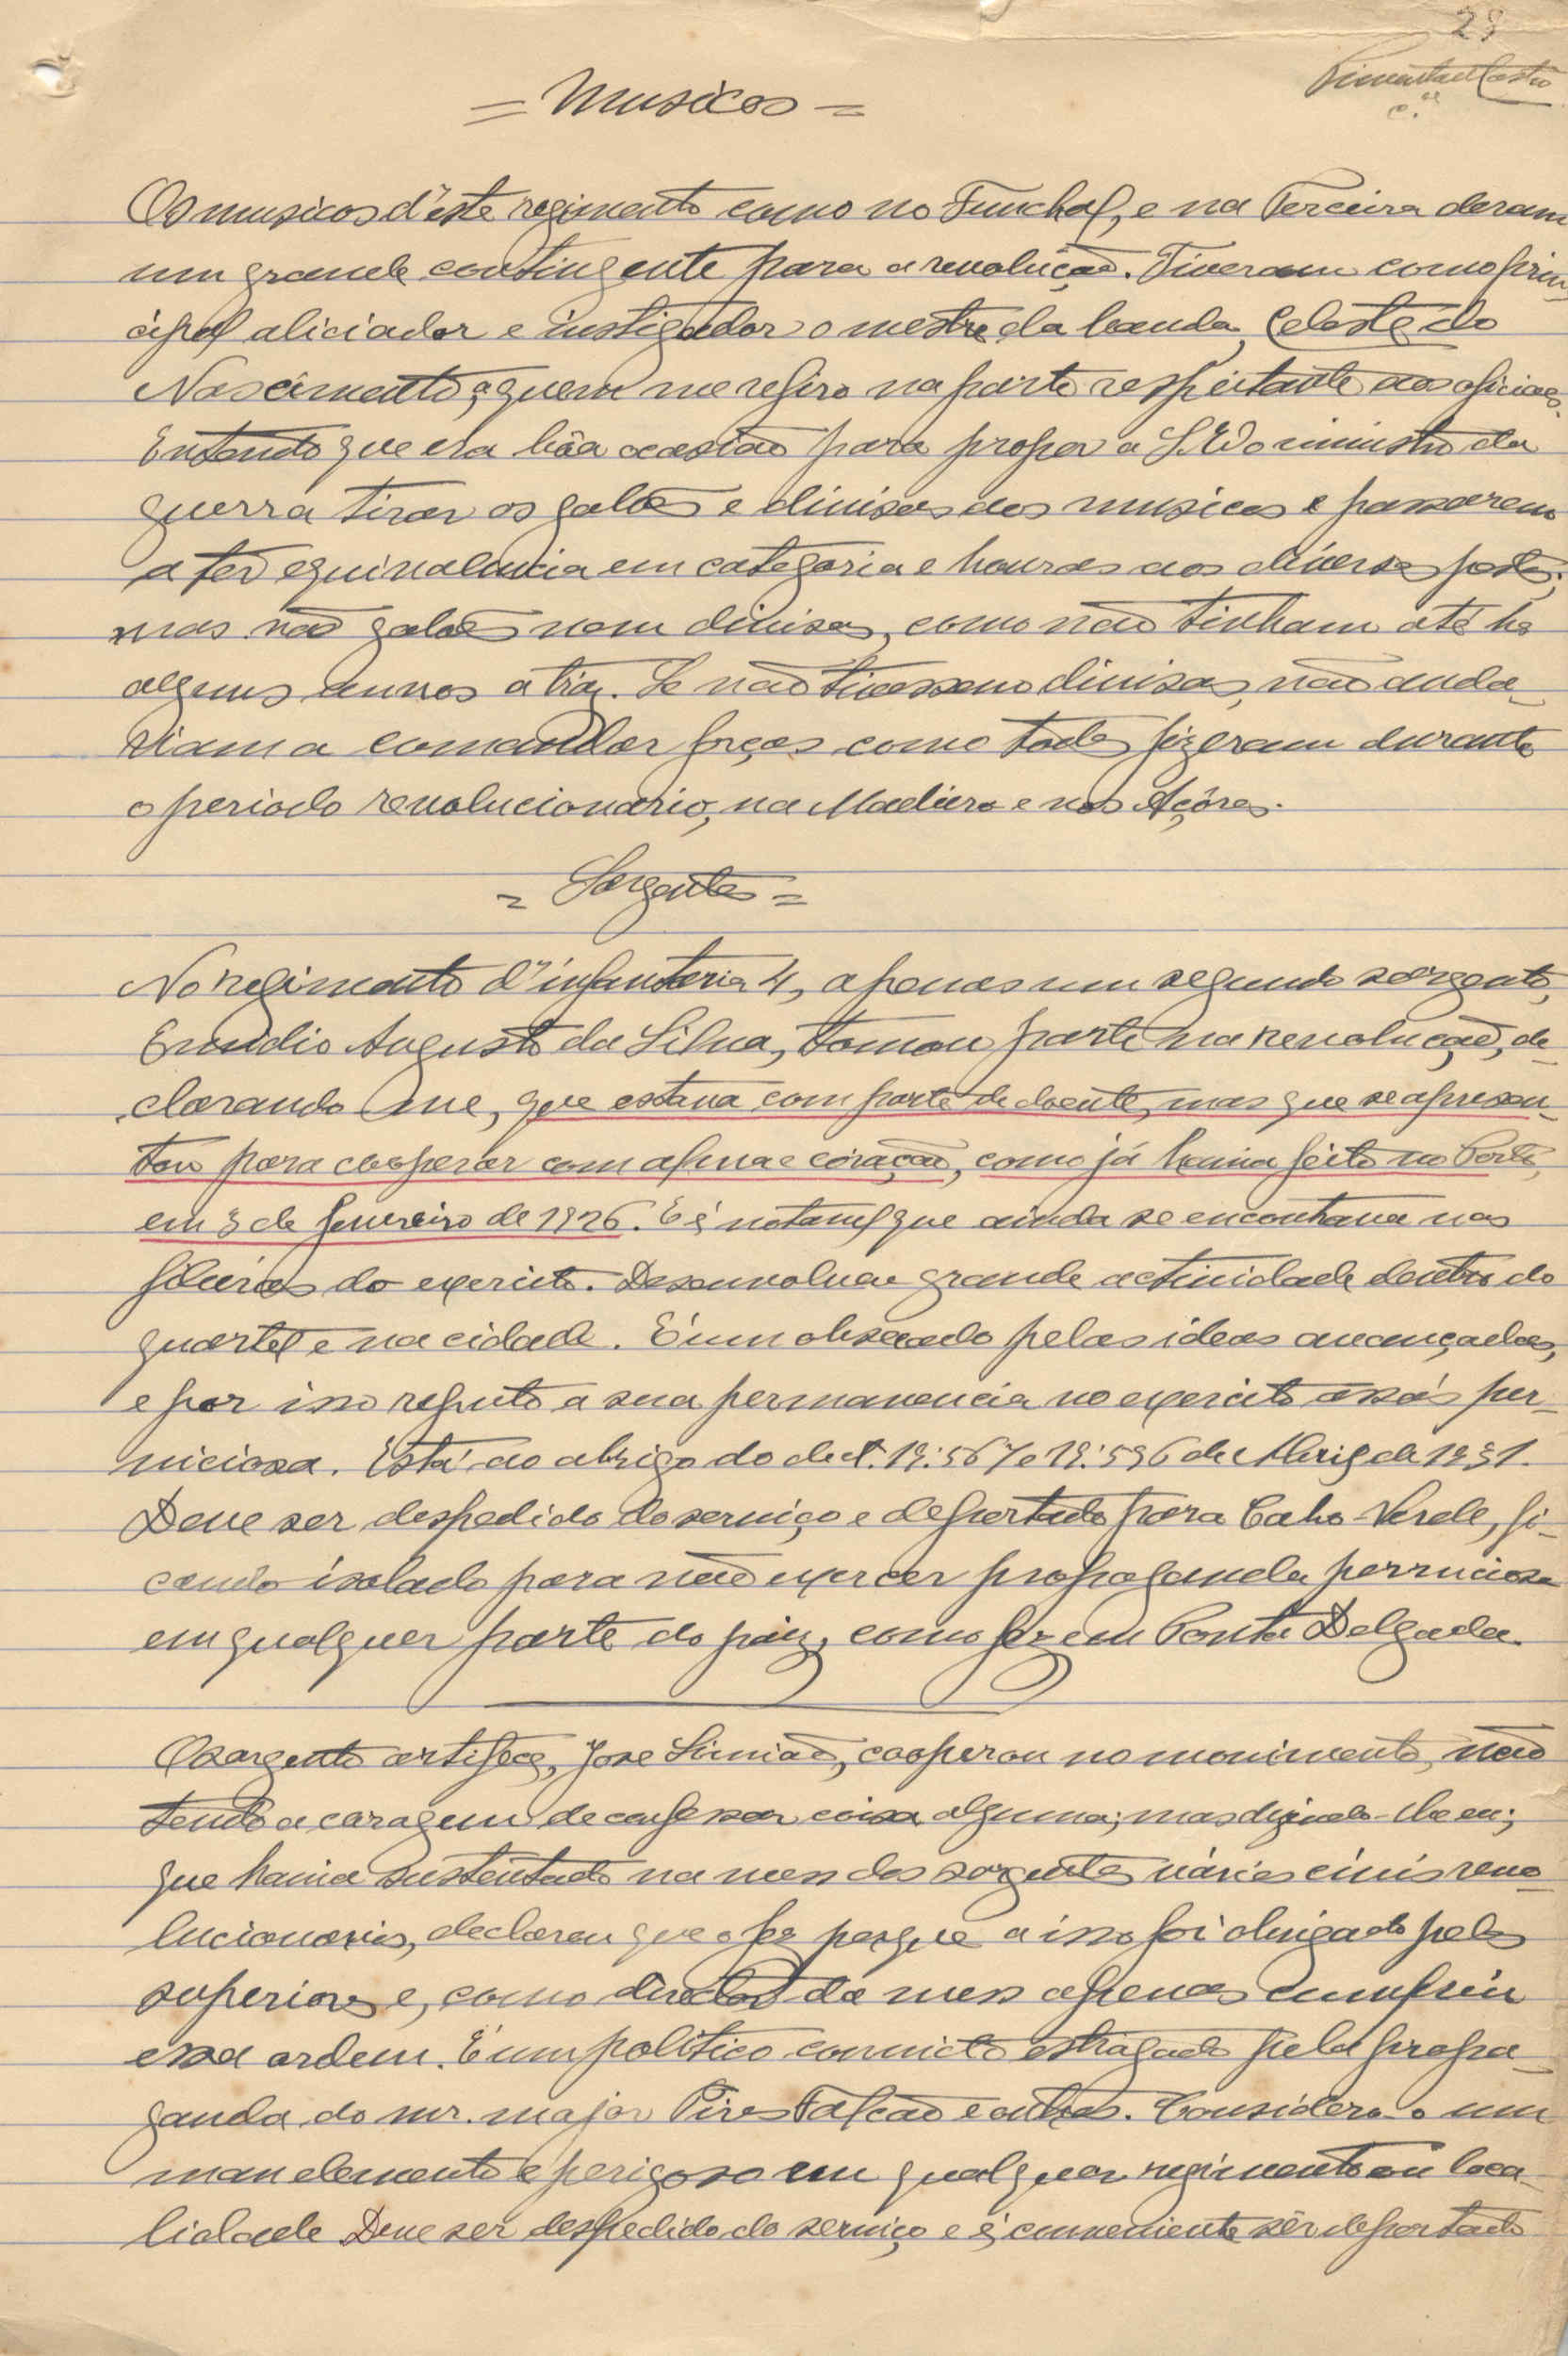 28
Pimenta de Castro
c.el
= Musicos =
Os musicos d'éste regimento como no Funchal, e na Terceira deram
um grande contingente para a revolução. Tiveram como prin-
cipal aliciador e instigador o mestre da banda, Celeste do
Nascimento, a quem me refiro na parte respeitante aos oficiaes.
Entendo que era bôa ocasião para propor a S. Ex.ª o ministro da
guerra tirar os galões e divisas aos musicos e passarem
a ter equivalencia em categoria e honras aos diversos postos;
mas não galões nem divisas, como não tinham até há
alguns annos atraz. Se não tivessem divisas, não anda-
riam a comandar forças como todos fizeram durante
o periodo revolucionario, na Madeira e nos Açôres.
= Sargentos =
No regimento d'infanteria 4, apenas um segundo sargento,
Augusto da Silva, tomou parte na revolução, de-
clarando-me, que estava com parte de doente, mas que se apresen-
tou para cooperar com alma e coração, como já havia feito no Porto,
em 3 de fevereiro de 1926. E é notavel que ainda se encontrava nas
fileiras do exercito. Desenvolveu grande actividade dentro do
quartel e na cidade. É um obsecado pelas ideas avançadas,
e por isso reputo a sua permanencia no exercito assás per-
niciosa. Está ao abrigo do dect. 19:567 e 19:596 de Abril de 1931.
Deve ser despedido do serviço e deportado para Cabo-Verde, fi-
cando isolado para não exercer propaganda perniciosa
em qualquer parte do paiz, como fez em Ponta Delgada.
O sargento artifece, José Simião, cooperou no movimento, não
tendo a coragem de confessar coisa alguma; mas dizendo-lhe eu;
que havia sustentado na mess dos sargentos vários civis revo-
lucionarios, declarou que o fez porque a isso foi obrigado pelos
superiores e, como director da mess apenas cumpriu
essa ordem. É um politico convicto estragado pela propa-
ganda do snr. major Pires Falcão e outros. Considero-o um
mau elemento e perigoso em qualquer regimento ou loca-
lidade Deve ser despedido do serviço e é conveniente sêr deportado